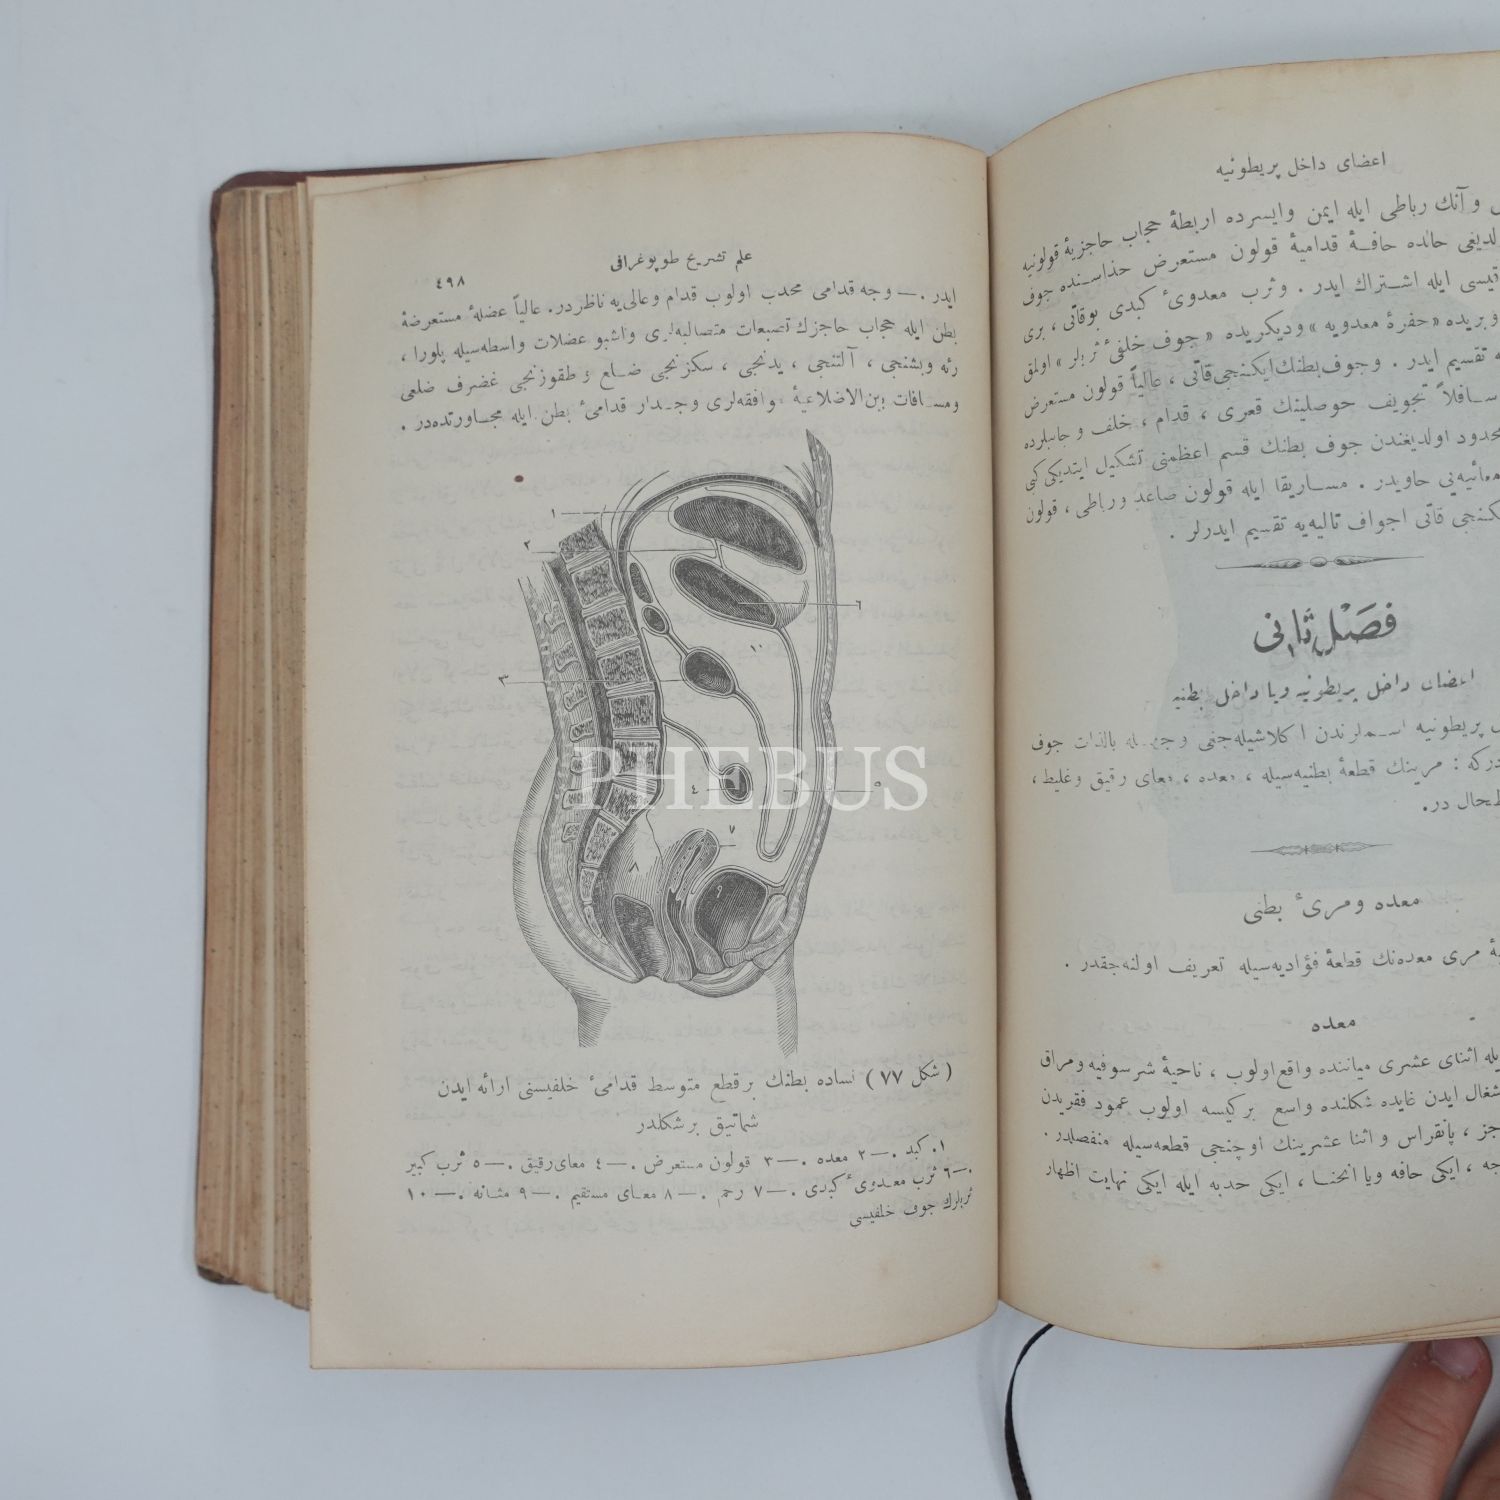 علم تشریح طوپوغرافی
٤٩٨
ایدر .— وجه قدامی محدب اولوب قدام وعالی‌یه ناظردر. عالیاً عضلهٔ مستعرضهٔ
بطن ایله حجاب حاجزك تصبعات متصالبه‌لری واشبو عضلات واسطه‌سیله پلورا ،
رئه وبشنجی ، آلتنجی ، یدنجی ، سکزنجی ضلع و طقوزنجی غضرف ضلعی
ومسافات بین‌الاضلاعیهٔ موافقه‌لری وجدار قدامئ بطن ایله مجاورتده‌در .
١
٢
٦
١٠
٣
٤
٥
٧
٨
٩
PHEBUS
( شکل ٧٧ ) نساده بطنك بر قطع متوسط قدامئ خلفیسنی ارائه ایدن
شماتیق بر شکلدر
١. کبد .—٢ معده .—٣ قولون مستعرض .—٤ معای رقیق .—٥ ثرب کبیر
.—٦ ثرب معدوئ کبدی .—٧ رحم .—٨ معای مستقیم .—٩ مثانه .—١٠
ثربلرك جوف خلفیسی
اعضای داخل پریطونیه
و آنك رباطی ایله ایمن وایسرده اربطهٔ حجاب حاجزیهٔ قولونیه
لدیغی حالده حافهٔ قدامیهٔ قولون مستعرض حذاسنده جوف
قتیسی ایله اشتراك ایدر . وثرب معدوئ کبدی بوقاتی ، بری
وبریده «حفرهٔ معدویه» ودیکریده «جوف خلفئ ثربلر» اولمق
تقسیم ایدر . وجوف بطنك ایکنجی قاتی ، عالیاً قولون مستعرض
سافلاً تجویف حوصلینك قعری ، قدام ، خلف و جانبلرده
محدود اولدیغندن جوف بطنك قسم اعظمنی تشکیل ایتدیکی کبی
معائیه‌یی حاویدر . مساریقا ایله قولون صاعد ورباطی ، قولون
یکنجی قاتی اجواف تالیه‌یه تقسیم ایدرلر .
فصل ثانی
اعضای داخل پریطونیه ویا داخل بطنیه
پریطونیه اسملرندن اکلاشیله‌جغی وجهله بالذات جوف
درکه : مرینك قطعهٔ بطنیه‌سیله ، معده ، معای رقیق وغلیظ ،
طحال در.
معده ومرئ بطنی
مری معده‌نك قطعهٔ فؤادیه‌سیله تعریف اولنه‌جقدر .
معده
یله اثنای عشری میاننده واقع اولوب ، ناحیهٔ شرسوفیه ومراق
شغال ایدن غایده شکلنده واسع برکیسه اولوب عمود فقریدن
جز ، پانقراس و اثنا عشرینك اوچنجی قطعه‌سیله منفصلدر .
جه ، ایکی حافه ویا انحنا ، ایکی حدبه ایله ایکی نهایت اظهار